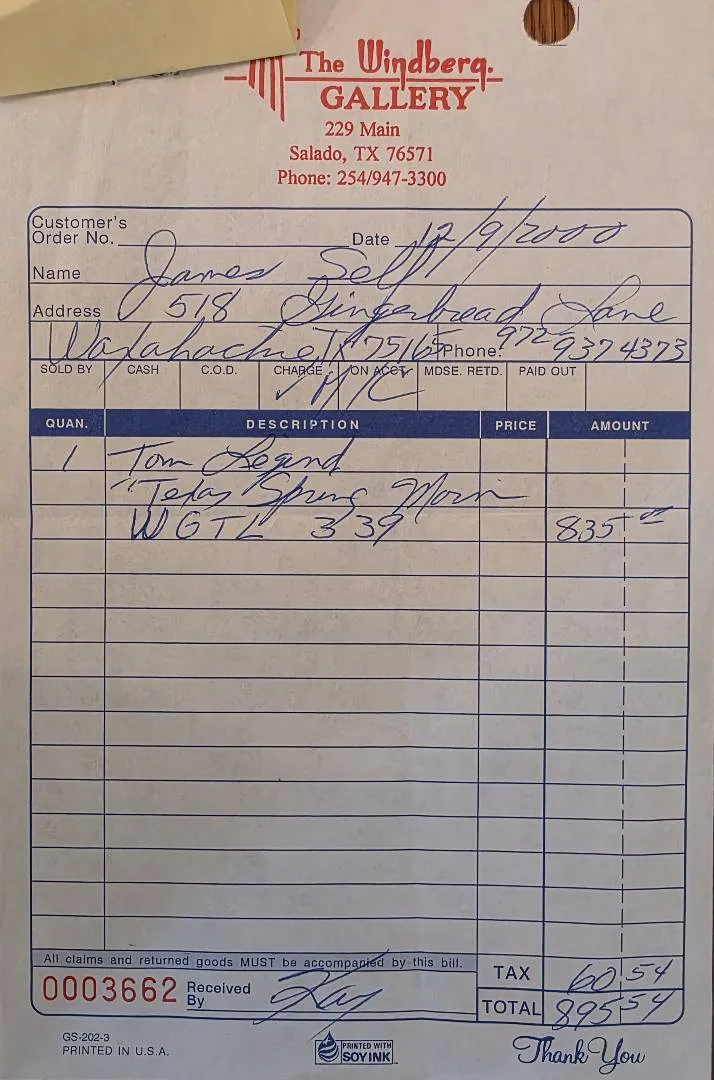 The Windberg.
GALLERY
229 Main
Salado, TX 76571
Phone: 254/947-3300
Customer's
Order No. Date 12/9/2000
Name James Self
Address 518 Gingerbread Lane
Waxahachie, TX 75165 Phone: 972-937 4373
SOLD BY CASH C.O.D. CHARGE ON ACCT. MDSE. RETD. PAID OUT
✓ M/C
QUAN. DESCRIPTION PRICE AMOUNT
1 Tom Legend
"Texas Spring Morn
WGTL 339 835 00
All claims and returned goods MUST be accompanied by this bill.
TAX 60 54
0003662 Received By Kay
TOTAL 895 54
GS-202-3
PRINTED IN U.S.A.
PRINTED WITH
SOY INK
Thank You